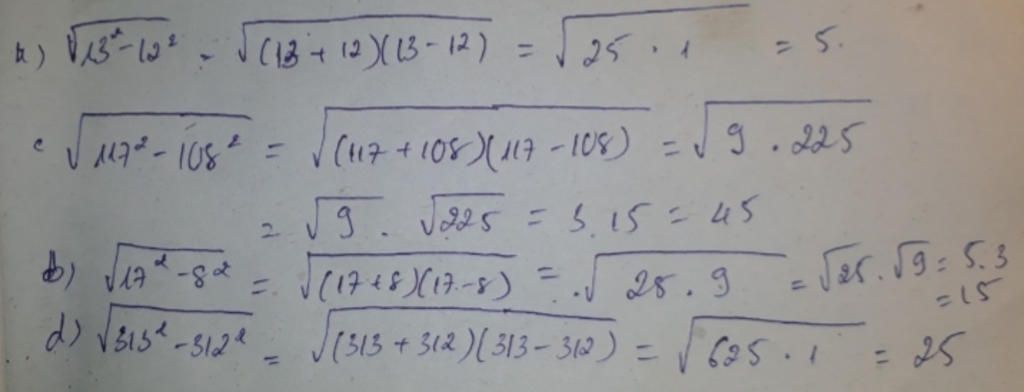 a) √(13² - 12²) = √((13 + 12)(13 - 12)) = √(25 . 1) = 5.
c √(117² - 108²) = √((117 + 108)(117 - 108)) = √(9 . 225)
= √9 . √225 = 3.15 = 45
b) √(17² - 8²) = √((17+8)(17-8)) = √(25 . 9) = √25 . √9 = 5.3
= 15
d) √(313² - 312²) = √((313 + 312)(313 - 312)) = √(625 . 1) = 25